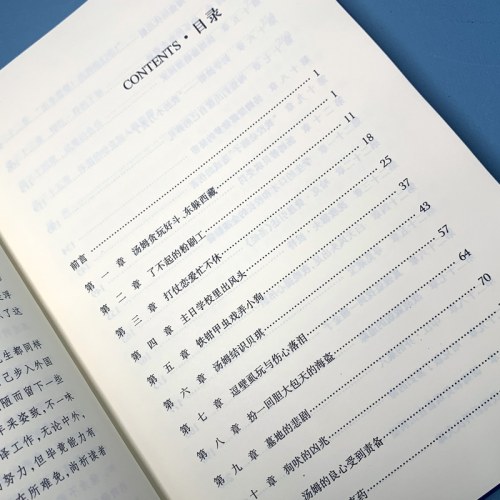 CONTENTS · 目录
前言 1
第一章 汤姆贪玩好斗、东躲西藏 1
第二章 了不起的粉刷工 11
第三章 打仗恋爱忙不休 18
第四章 主日学校里出风头 25
第五章 铁钳甲虫戏弄小狗 37
第六章 汤姆结识贝琪 43
第七章 逗壁虱玩与伤心落泪 57
第八章 扮一回胆大包天的海盗 64
第九章 墓地的悲剧 70
十章 狗吠的凶兆
章 汤姆的良心受到责备
药
了这
生都同样
已步入外国
陋而留下一些
采姿致，不一味
译工作，无论中外，
的努力，但毕竟能力有
在所难免，尚祈读者